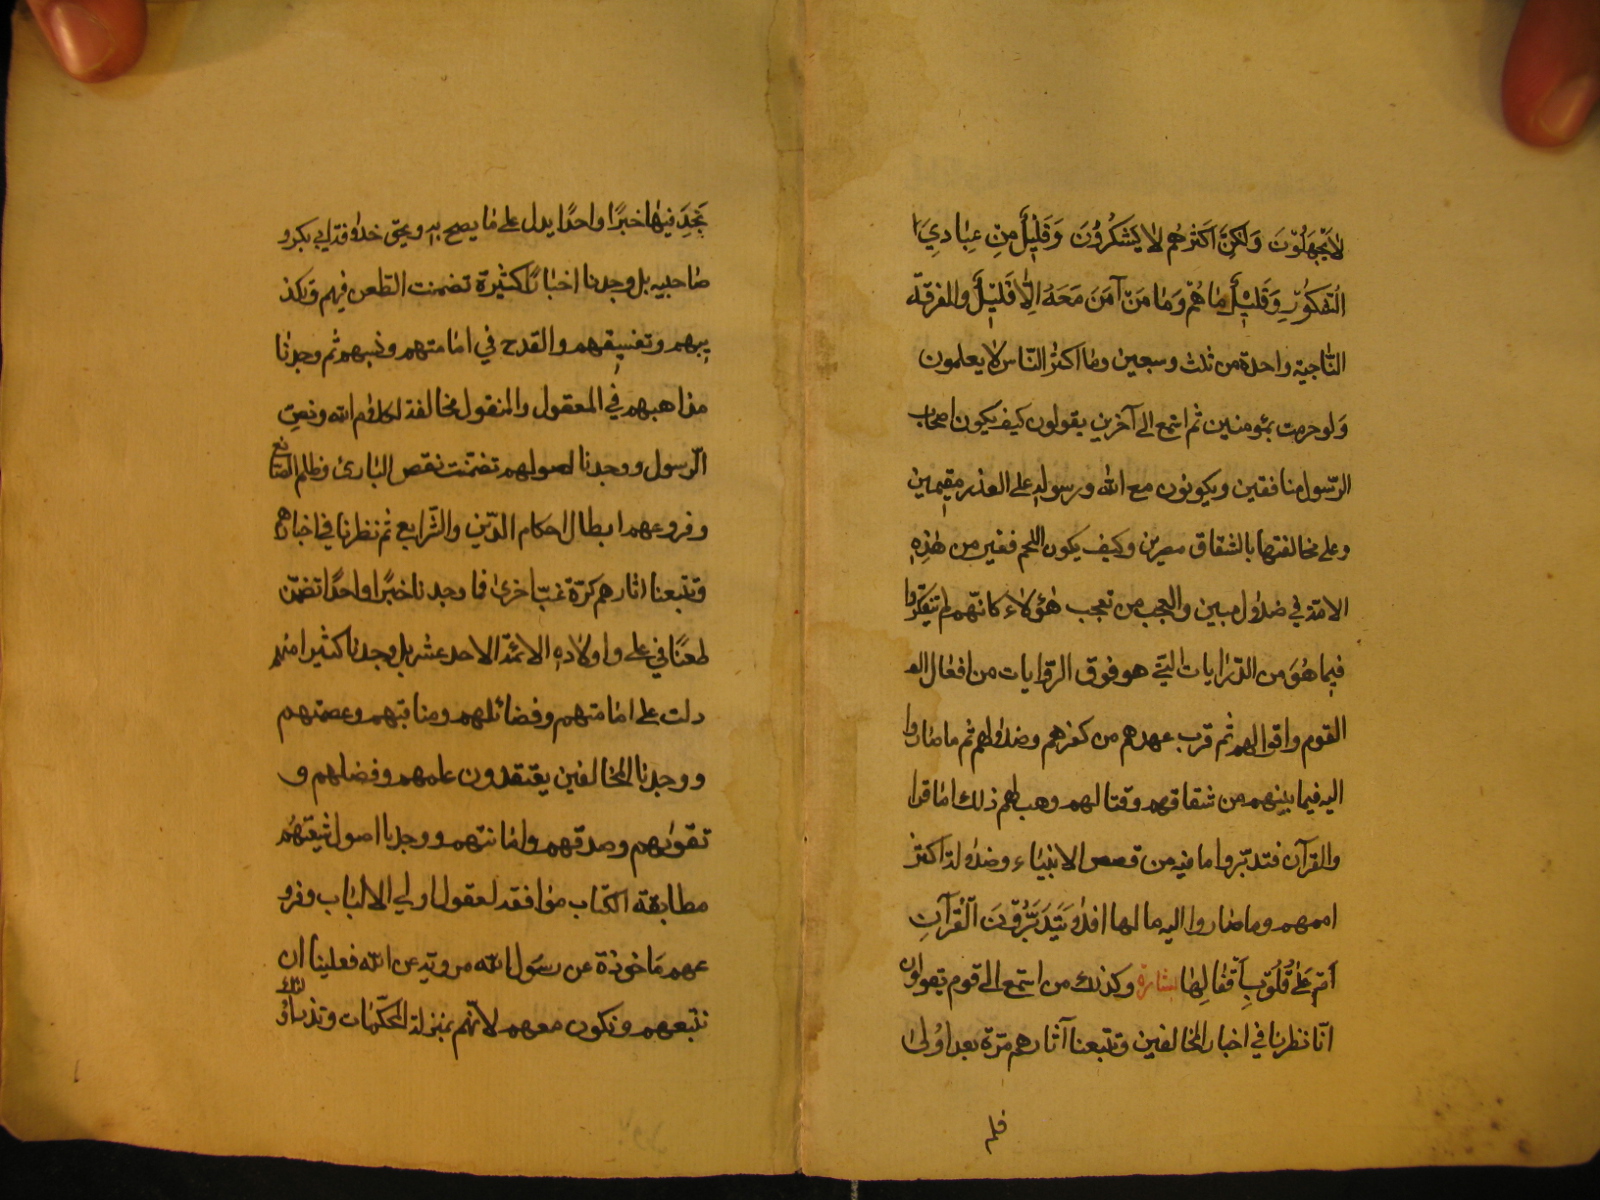 لا يجهلون ولكن اكثرهم لا يشكرون وقليل من عبادي ا
الشكور وقليل ما هم وما من آمن معه الا قليل والفرقة
الناجية واحدة من ثلث وسبعين وما اكثر الناس لا يعلمون
ولو حرصت بمؤمنين ثم استمع الى آخرين يقولون كيف يكون اصحاب
الرسول منافقين ويكونون مع الله ورسوله على الغدر مقيمين
وعلى مخالفتها بالشقاق مصرين وكيف يكون الجم فقير من هذه
الامة في ضلال مبين والعجب من تعجب هؤلاء كانهم لم يتفكروا
فيما هو من الدرايات التي هو فوق الروايات من افعال الو
القوم واقوالهم ثم قرب عهدهم من كفرهم وضلالهم ثم ما صاروا
اليه فيما بينهم من شقاقهم وقتالهم وهب لهم ذلك اما قرا
والقرآن فتدبروا ما فيه من قصص الانبياء وضلالة اكثر
اممهم وما صاروا اليه مالها افلا يتدبرون القرآن
ام على قلوب اقفالها بشارة وكذلك من استمع الى قوم يقولون
انا نظرنا في اخبار المخالفين وتتبعنا آثارهم مرة بعد اولى
فلم
نجد فيها خبرا واحدا يدل على ما يصح به ويحق خلافة ابي بكر و
صاحبيه بل وجدنا اخبارا كثيرة تضمنت الطعن فيهم وتكذ
يبهم وتفسيقهم والقدح في امامتهم ونسبهم ثم وجدنا
مذاهبهم في المعقول والمنقول مخالفة لكلام الله ونص
الرسول ووجدنا اصولهم تضمنت نقص البارئ وظلم الصانع
وفروعهم ابطال احكام الدين والشرايع ثم نظرنا في اخبارهم
وتتبعنا اثارهم كرة غب اخرى فما وجدنا خبرا واحدا تضمن
طعنا في علي واولاده الائمة الاحد عشر بل وجدنا كثيرا منهم
دلت على امامتهم وفضائلهم ومناقبهم وعصمتهم
ووجدنا المخالفين يعتقدون علمهم وفضلهم و
تقويهم وصدقهم وامانتهم ووجدنا اصول شيعتهم
مطابقة الكتاب موافقة لعقول اولي الالباب وفرو
عهم ماخوذة عن رسول الله مروية عن الله فعلينا ان
نتبعهم ونكون معهم لانهم بمنزلة المحكمات ونذر